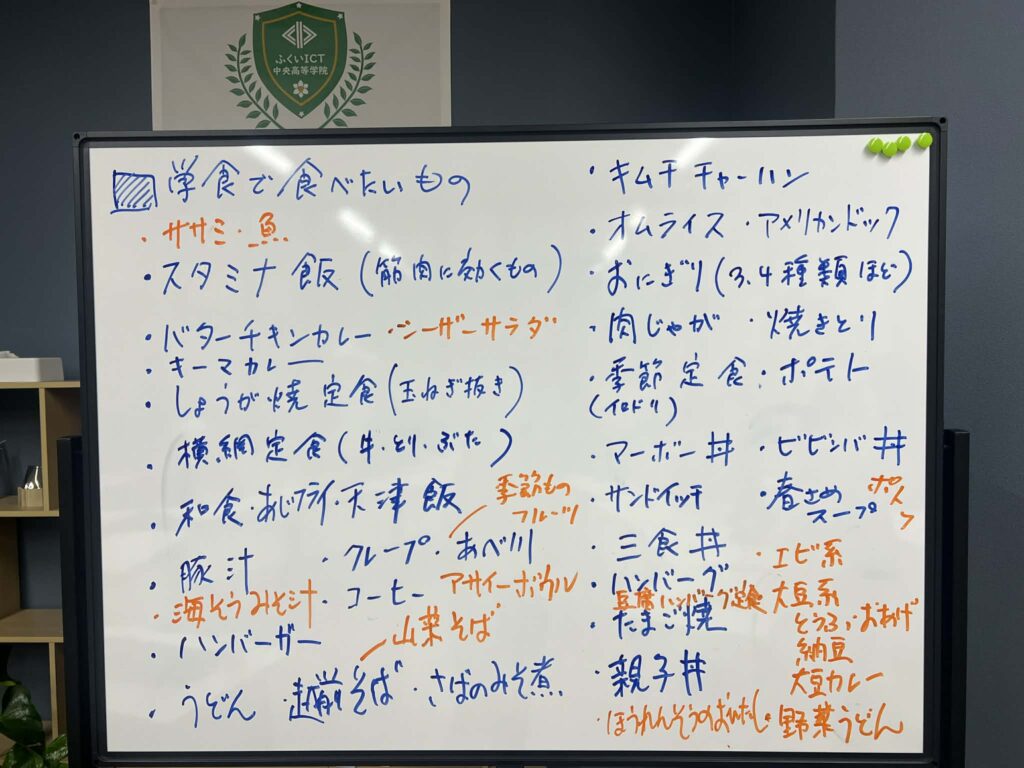 ふくいICT
中央高等学院
学食で食べたいもの
・ササミ・魚
・スタミナ飯(筋肉に効くもの)
・バターチキンカレー ・シーザーサラダ
・キーマカレー
・しょうが焼定食(玉ねぎ抜き)
・横綱定食(牛・とり・ぶた)
・和食・あじフライ・天津飯
季節もの
フルーツ
・豚汁 ・クレープ・あべ川
・海そうみそ汁 ・コーヒー アサイーボウル
・ハンバーガー 山菜そば
・うどん ・越前そば ・さばのみそ煮
・キムチチャーハン
・オムライス ・アメリカンドック
・おにぎり(3.4種類ほど)
・肉じゃが ・焼きとり
・季節定食・ポテト
(イロドリ)
・マーボー丼 ・ビビンバ丼
・サンドイッチ ・春さめ
スープ
・三食丼 ・エビ系
・ハンバーグ 大豆系
豆腐ハンバーグ定食 とうふ、おあげ
・たまご焼 納豆
・親子丼 大豆カレー
・ほうれんそうのおひたし・野菜うどん